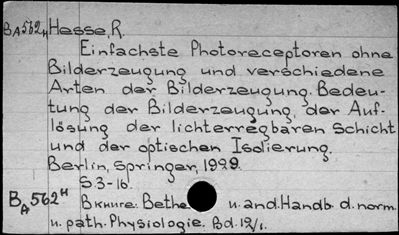 BA562н Hesse, R.
Einfachste Photoreceptoren ohne
Bilderzeugung und verschiedene
Arten der Bilderzeugung. Bedeu-
tung der Bilderzeugung, der Auf-
lösung der lichterregbaren Schicht
und der optischen Isolierung.
Berlin, Springer, 1929.
S. 3-16.
BA562н В книге: Bethe u. and. Handb. d. norm.
u. path. Physiologie. Bd. 12/1.